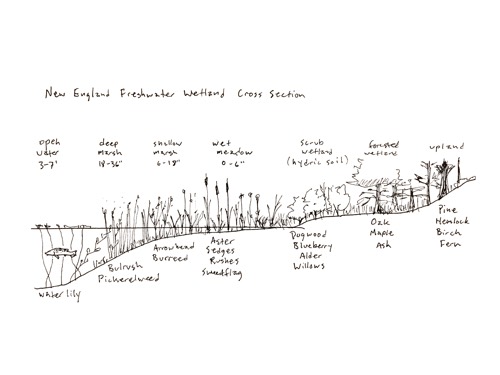 New England Freshwater Wetland Cross Section
open
water
3-7'
deep
marsh
18-36"
shallow
marsh
6-18"
wet
meadow
0-6"
scrub
wetland
(hydric soil)
forested
wetland
upland
water lily
Bulrush
Pickerelweed
Arrowhead
Burreed
Aster
Sedges
Rushes
Sweetflag
Dogwood
Blueberry
Alder
Willows
Oak
Maple
Ash
Pine
Hemlock
Birch
Fern